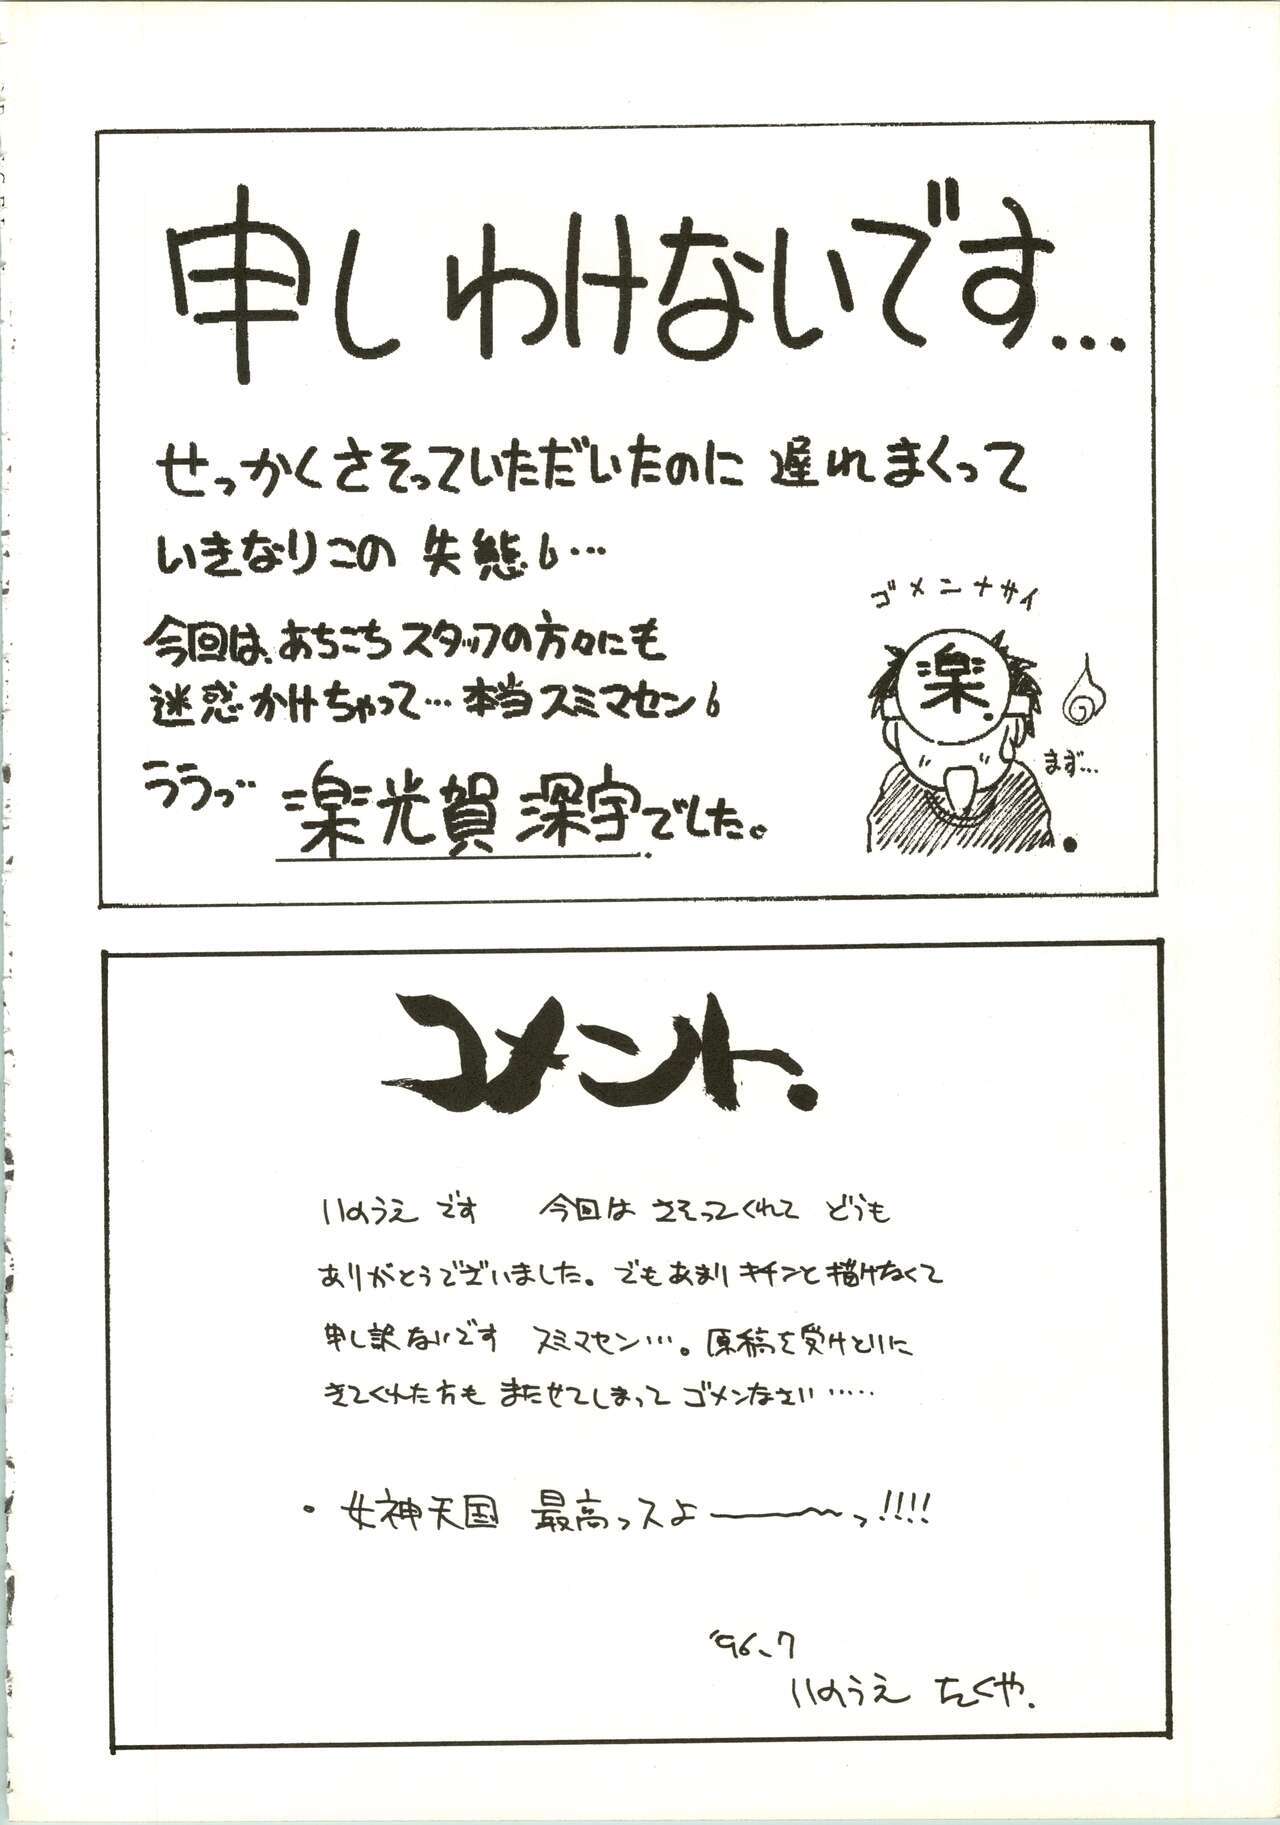 申しわけないです…
せっかくさそっていただいたのに 遅れまくって
いきなりこの 失態…
ゴメンナサイ
今回は、あちこち スタッフの方々にも
迷惑かけちゃって… 本当スミマセン
楽
まず…
ううっ… 楽光賀 深宇でした。
コメント.
いのうえ です 今回は さそってくれて どうも
ありがとうございました。でもあまり キチンと描けなくて
申し訳ないです スミマセン…。原稿を受けとりに
きてくれた方も またせてしまって ゴメンなさい……
・女神天国 最高っスよ――〜っ!!!!
'96.7
いのうえ たくや.